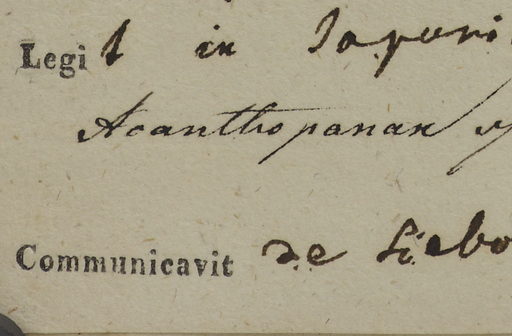 Legit in Japoni
Acanthopanax sp
Communicavit de Siebo